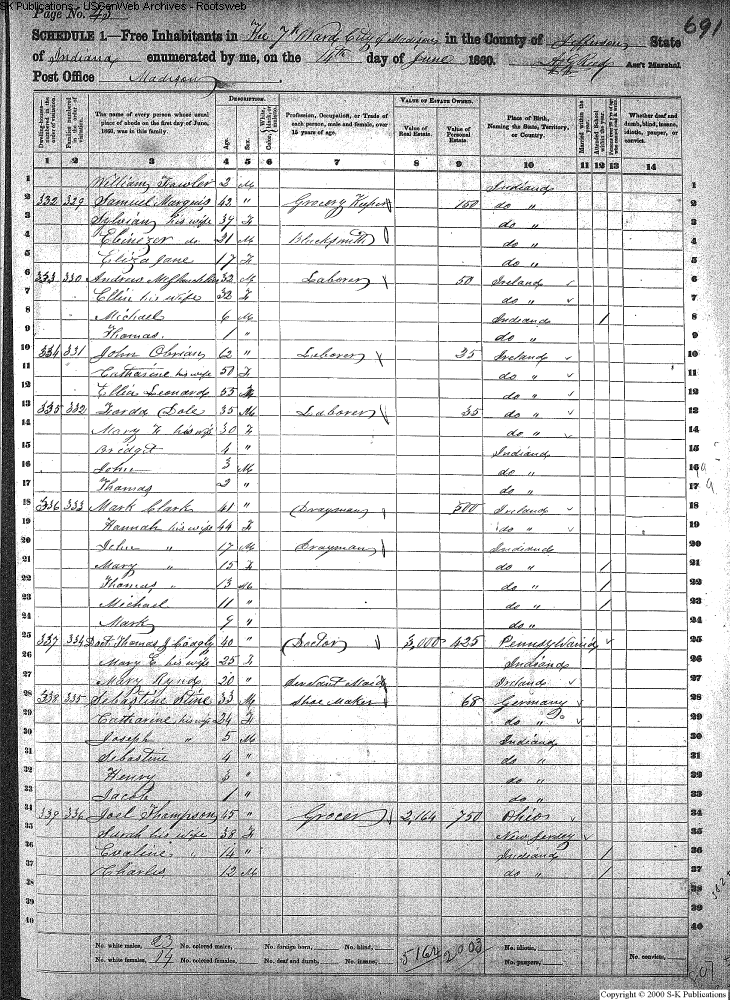 SK Publications - USGenWeb Archives - Rootsweb
Page No. 43
691
SCHEDULE 1.—Free Inhabitants in The 7th Ward City of Madison in the County of Jefferson State
of Indiana enumerated by me, on the 14th day of June 1860. Ass't Marshal.
Post Office Madison
Dwelling-houses—numbered in the order of visitation.
Families numbered in the order of visitation.
The name of every person whose usual place of abode on the first day of June, 1860, was in this family.
DESCRIPTION.
Age.
Sex.
Color, White, black, or mulatto.
Profession, Occupation, or Trade of each person, male and female, over 15 years of age.
VALUE OF ESTATE OWNED.
Value of Real Estate.
Value of Personal Estate.
Place of Birth, Naming the State, Territory, or Country.
Married within the year.
Attended School within the year.
Whether deaf and dumb, blind, insane, idiotic, pauper, or convict.
1 2 3 4 5 6 7 8 9 10 11 12 13 14
1 William Fowler 2 M Indiana 1
2 332 329 Samuel Marquis 42 " Grocery Keeper 150 do " 2
3 Sylvian his wife 39 F do " 3
4 Ebinezer do 21 M Blacksmith do " 4
5 Eliza Jane 17 F do " 5
6 333 330 Andrew 32 M Laborer 50 Ireland 6
7 Ellin his wife 32 F do " 7
8 Michael 6 M Indiana / 8
9 Thomas 1 " do " 9
10 334 331 John Obrian 62 " Laborer 35 Ireland 10
11 Catharine his wife 50 F do " 11
12 Ellin Leonard 55 F do " 12
13 335 332 Dole 35 M Laborer 35 do " 13
14 Mary his wife 30 F do " 14
15 Bridget 4 " Indiana 15
16 John 3 M do " 16
17 Thomas 2 " do " 17
18 336 333 Mark Clark 41 " Drayman 500 Ireland 18
19 Hannah his wife 44 F do " 19
20 John " 17 M Drayman Indiana 20
21 Mary " 15 F do " / 21
22 Thomas " 13 M do " / 22
23 Michael 11 " do " / 23
24 Mark 9 " do " 24
25 337 334 Doct Thomas J 40 " Doctor 3,000 425 Pennsylvania 25
26 Mary E his wife 25 F Indiana 26
27 Mary Rynd 20 " Servant Maid Ireland 27
28 338 335 Sebastine Stine 33 M Shoe Maker 68 Germany 28
29 Catharine his wife 24 F do " 29
30 Joseph " 5 M Indiana 30
31 Sebastine 4 " do " 31
32 Henry 3 " do " 32
33 Jacob 1 " do " 33
34 339 336 Joel Thompson 45 " Grocer 2,164 750 Ohio 34
35 Sarah his wife 38 F New Jersey 35
36 Evaline " 14 " Indiana / 36
37 Charles 12 M do " / 37
38 38
39 39
40 40
No. white males, 23 No. colored males, No. foreign born, No. blind, 5164 2003 No. idiotic, No. convicts,
No. white females, 14 No. colored females, No. deaf and dumb, No. insane, No. paupers,
Copyright © 2000 S-K Publications